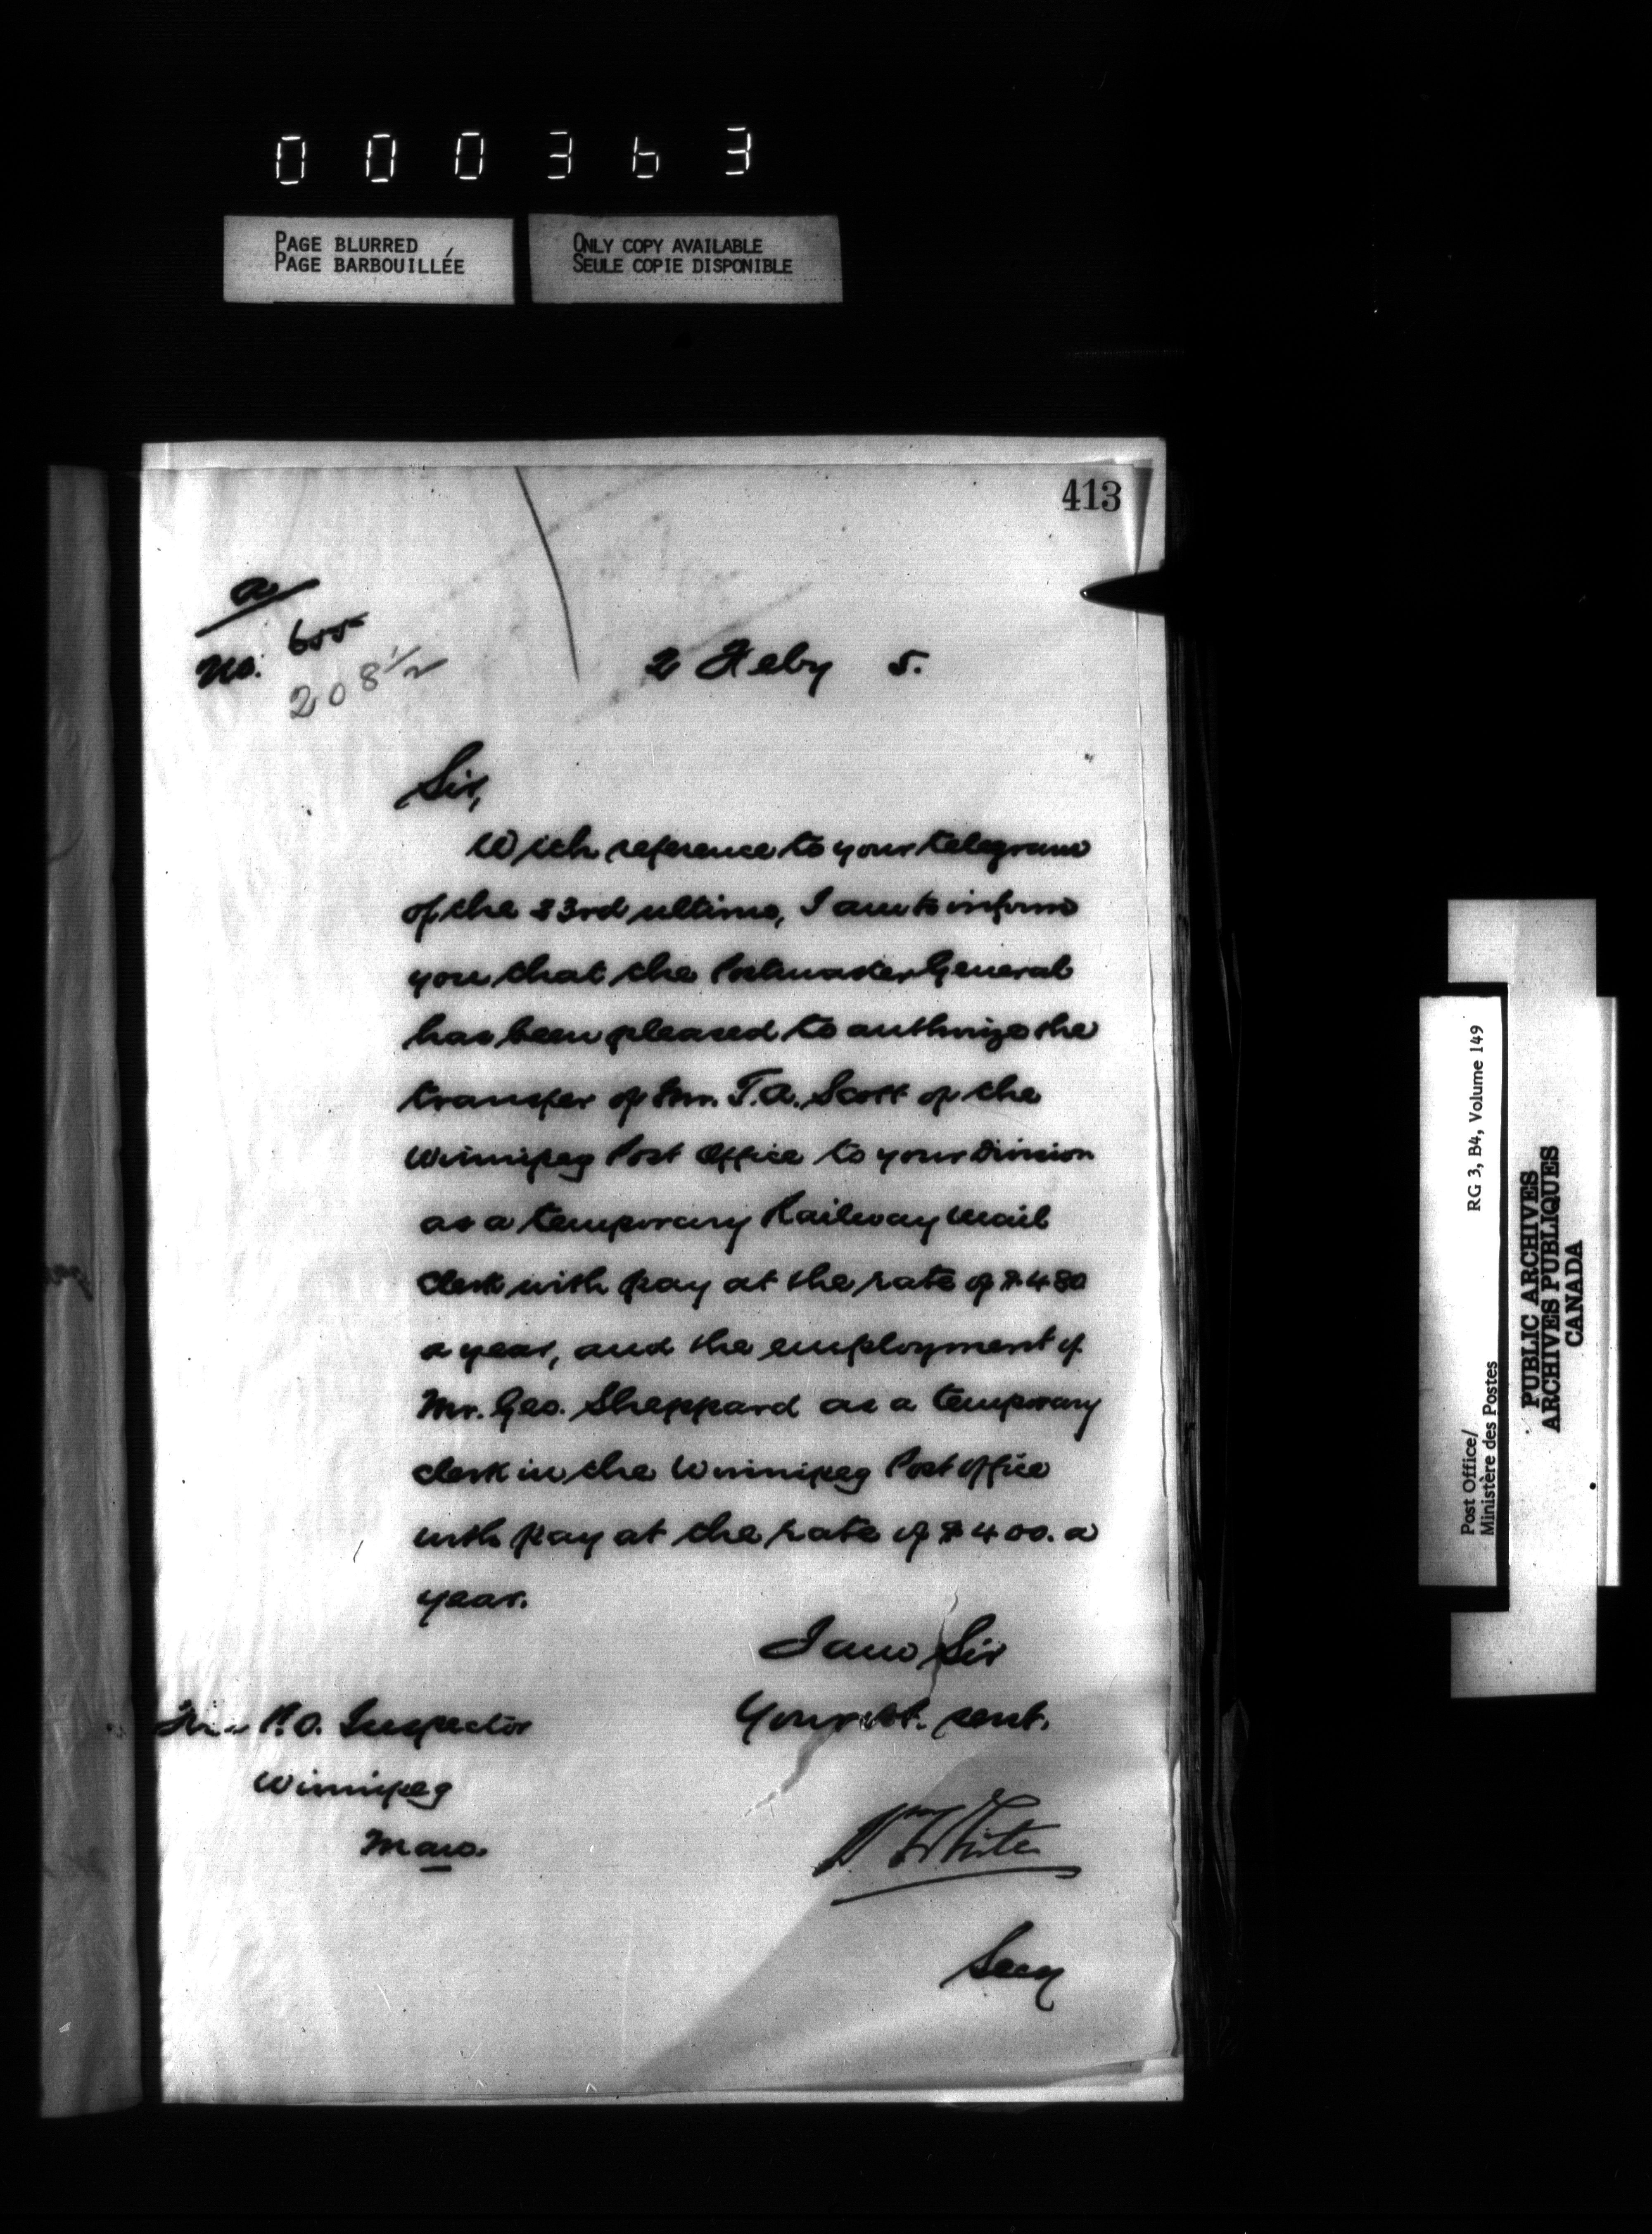 000363
PAGE BLURRED
PAGE BARBOUILLÉE
ONLY COPY AVAILABLE
SEULE COPIE DISPONIBLE
413
a
No. 655
208 1/2
2 Feby 5.
Sir,
With reference to your telegram
of the 23rd ultimo, I am to inform
you that the Postmaster General
has been pleased to authorize the
transfer of Mr. T.A. Scott of the
Winnipeg Post Office to your Division
as a temporary Railway Mail
Clerk with pay at the rate of $480
a year, and the employment of
Mr. Geo. Sheppard as a temporary
clerk in the Winnipeg Post Office
with pay at the rate of $400. a
year.
I am Sir
Your obt. sert.
P.O. Inspector
Winnipeg
Man.
Wm White
Secy
Post Office/
Ministère des Postes
RG 3, B4, Volume 149
PUBLIC ARCHIVES
ARCHIVES PUBLIQUES
CANADA